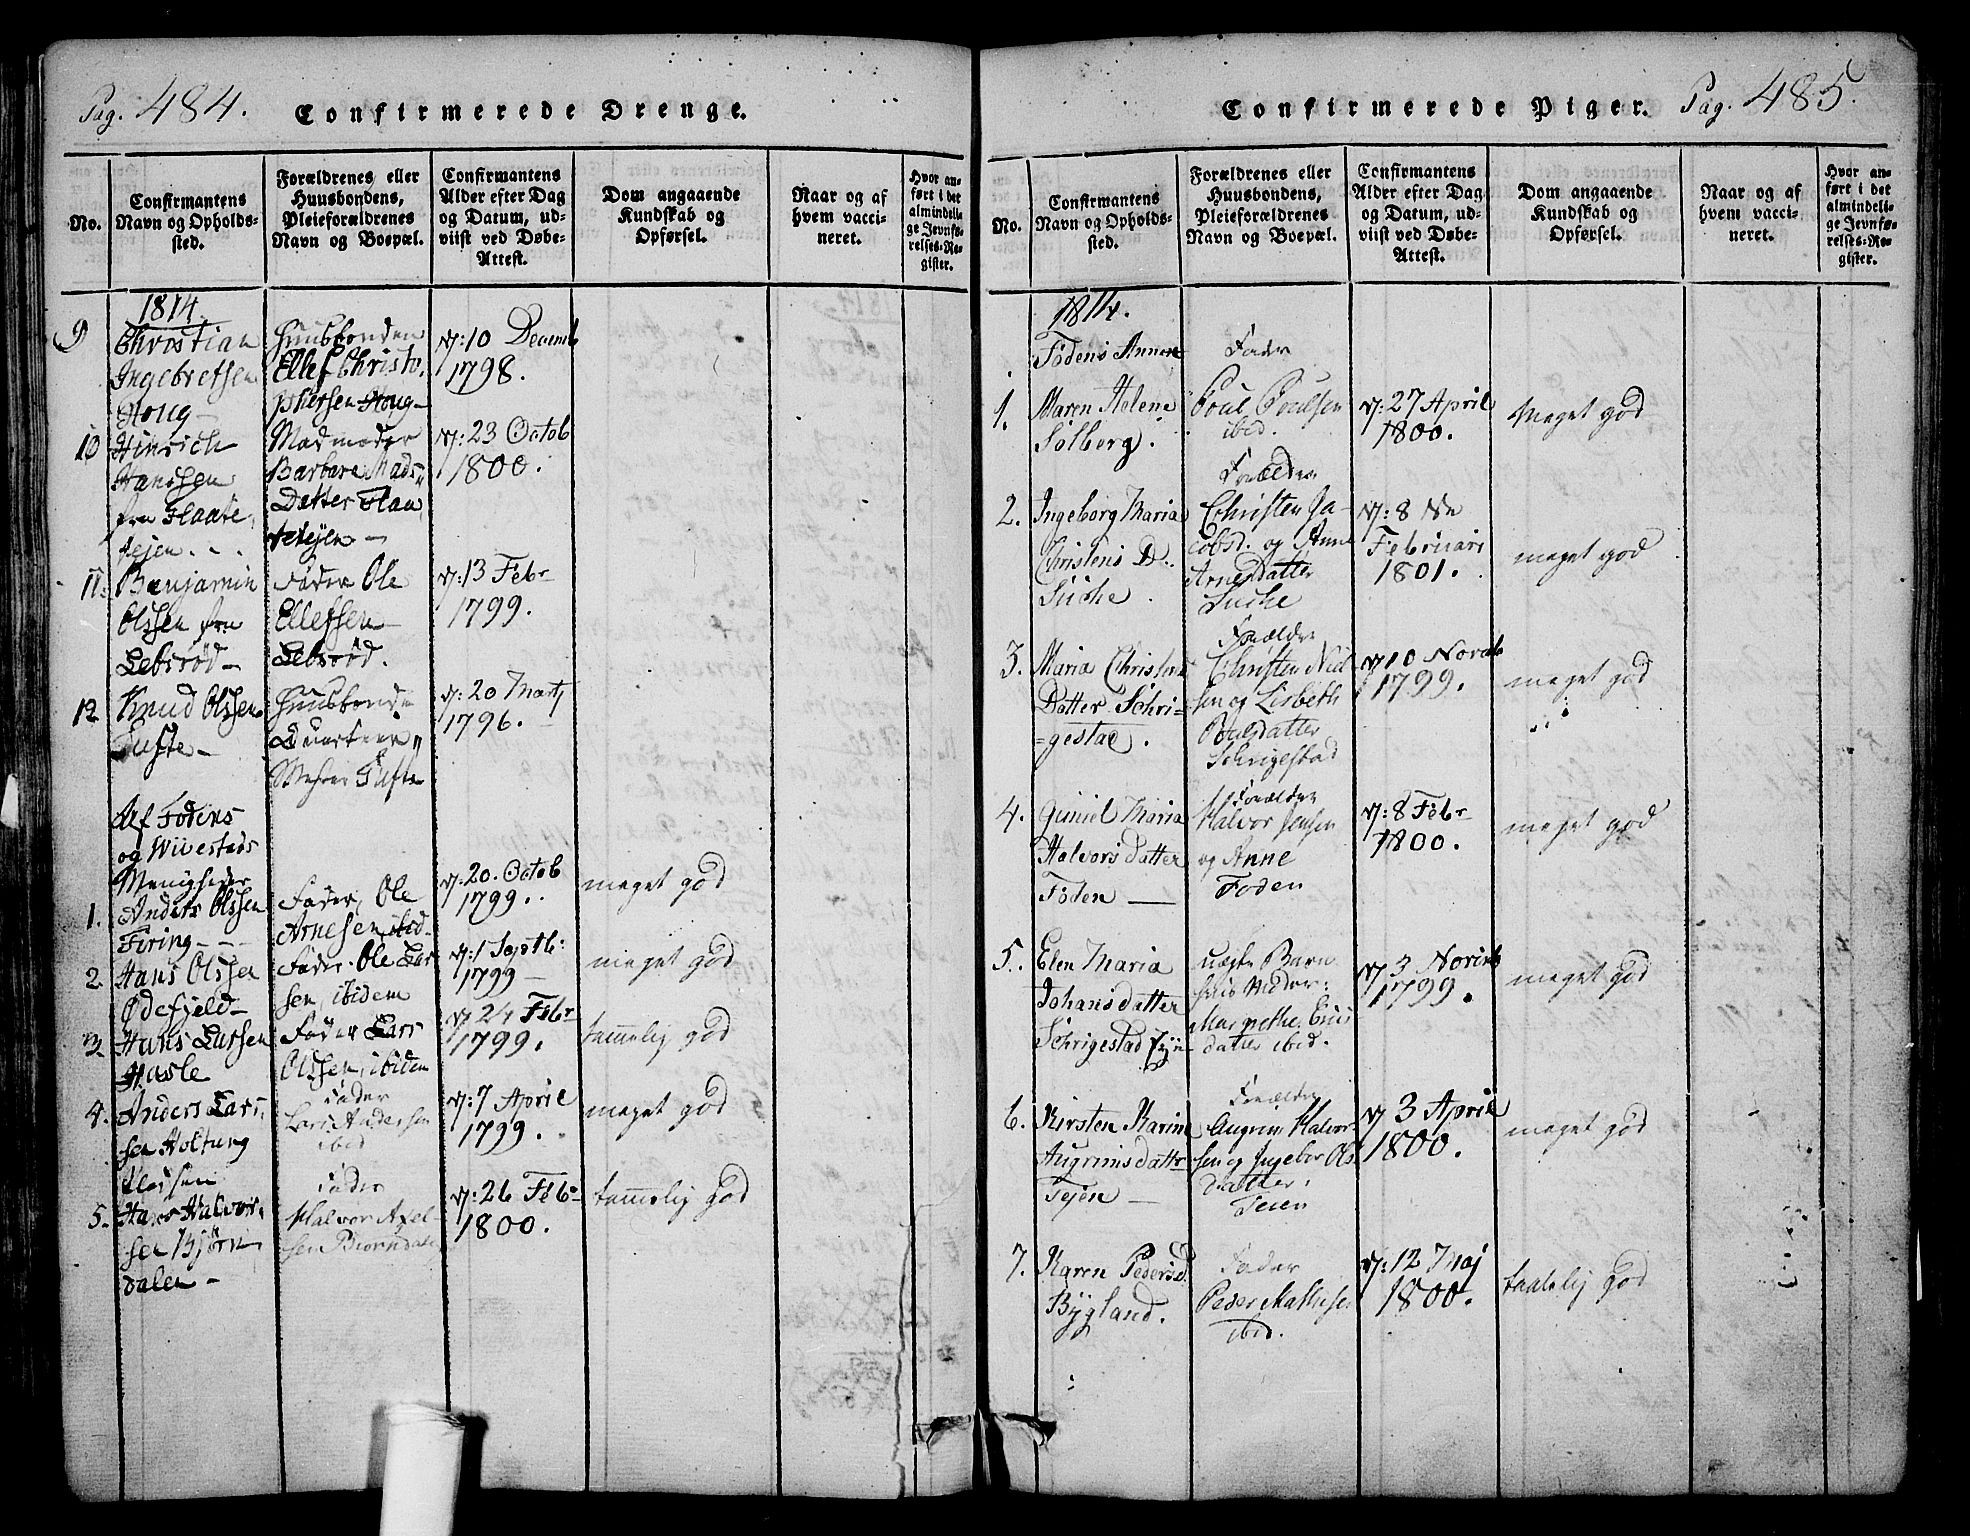 Pag. 484.
Confirmerede Drenge.
No.
Confirmantens
Navn og Opholds-
sted.
Forældrenes eller
Huusbondens,
Pleieforældrenes
Navn og Boepæl.
Confirmantens
Alder efter Dag
og Datum, ud-
viist ved Døbe-
Attest.
Dom angaaende
Kundskab og
Opførsel.
Naar og af
hvem vacci-
neret.
Hvor an-
ført i det
almindeli-
ge Jevnfø-
relses-Re-
gister.
1814.
9
Christian
Ingebretsen
Houg-
Huusbonden
Ellef Christo,
phersen Houg-
10 Decemb
1798.
10
Hinrich
Hanssen
fra Flaate,
tejen. . .
Madmoder
Barbara Mads,,
Datter Flaa
tetejen -
23 Octob
1800.
11.
Benjamin
Olssen fra
Lebsrød-
Fader Ole
Ellefsen
Lebsrød.
13 Febr
1799.
12
Knud Olssen
Tufte-
Huusbonde
Tufte
20 Marty
1796.
Af Fodens
og Wivestads
Menigheder
1.
Anders Olssen
Firing- - -
Fader, Ole
Arnesen ibid-
20. Octob
1799. .
meget god
2.
Hans Olssen
Ødefjeld-
Fader. Ole Lar
sen ibidem
1 Septb:
1799 -
meget god
3.
Hans Larsen
Hasle
Fader Lars
Olssen, ibidem
24 Febr
1799.
tammelig god
4.
Anders Lars,
sen Holtung
Pladsen
Fader
Lars Andersen
ibid
7 April
1799.
meget god
5.
Hans Halvor,
sen Bjørn
dalen -
Fader
Halvor Axel-
sen Biorndale
26 Febr
1800.
tammelig god
Confirmerede Piger.
Pag. 485.
No.
Confirmantens
Navn og Opholds-
sted.
Forældrenes eller
Huusbondens,
Pleieforældrenes
Navn og Boepæl.
Confirmantens
Alder efter Dag
og Datum, ud-
viist ved Døbe-
Attest.
Dom angaaende
Kundskab og
Opførsel.
Naar og af
hvem vacci-
neret.
Hvor an-
ført i det
almindeli-
ge Jevnfø-
relses-Re-
gister.
1814.
Fodens Annex
1.
Maren Helene
Solberg.
Fader
Poul Poulsen
ibid.
27 April
1800.
Meget god
2.
Ingeborg Maria
Christens D.
Suche
Forældre
Christen Ja-
cobs. og Anne
Arnesdatter
Suche
8
Februari
1801.
meget god
3.
Maria Christens
Datter Schri-
=gestad.
Forældre
Christen Niel
sen og Lisbeth
Poulsdatter
Schrigestad
10 Novemb
1799.
meget god
4.
Guniel Maria
Halvors Datter
Foden
Forældre
Halvor Jensen
og Anne
Foden
8 Febr
1800.
meget god
5.
Elen Maria
Johansdatter
Schrigestad
uægte Barn
Moder:
datter ibid.
3
1799.
meget god
6.
Kirsten Karine
Augrimsdatter
Tejen
Forældre
Augrim Halvor-
sen og Ingebor Ols
datter,
Teien
3 April
1800.
meget god
7.
Karen Pedersd.
Bygland.
Fader
Peder Mathisen
ibid.
12 Maj
1800.
taalelig god